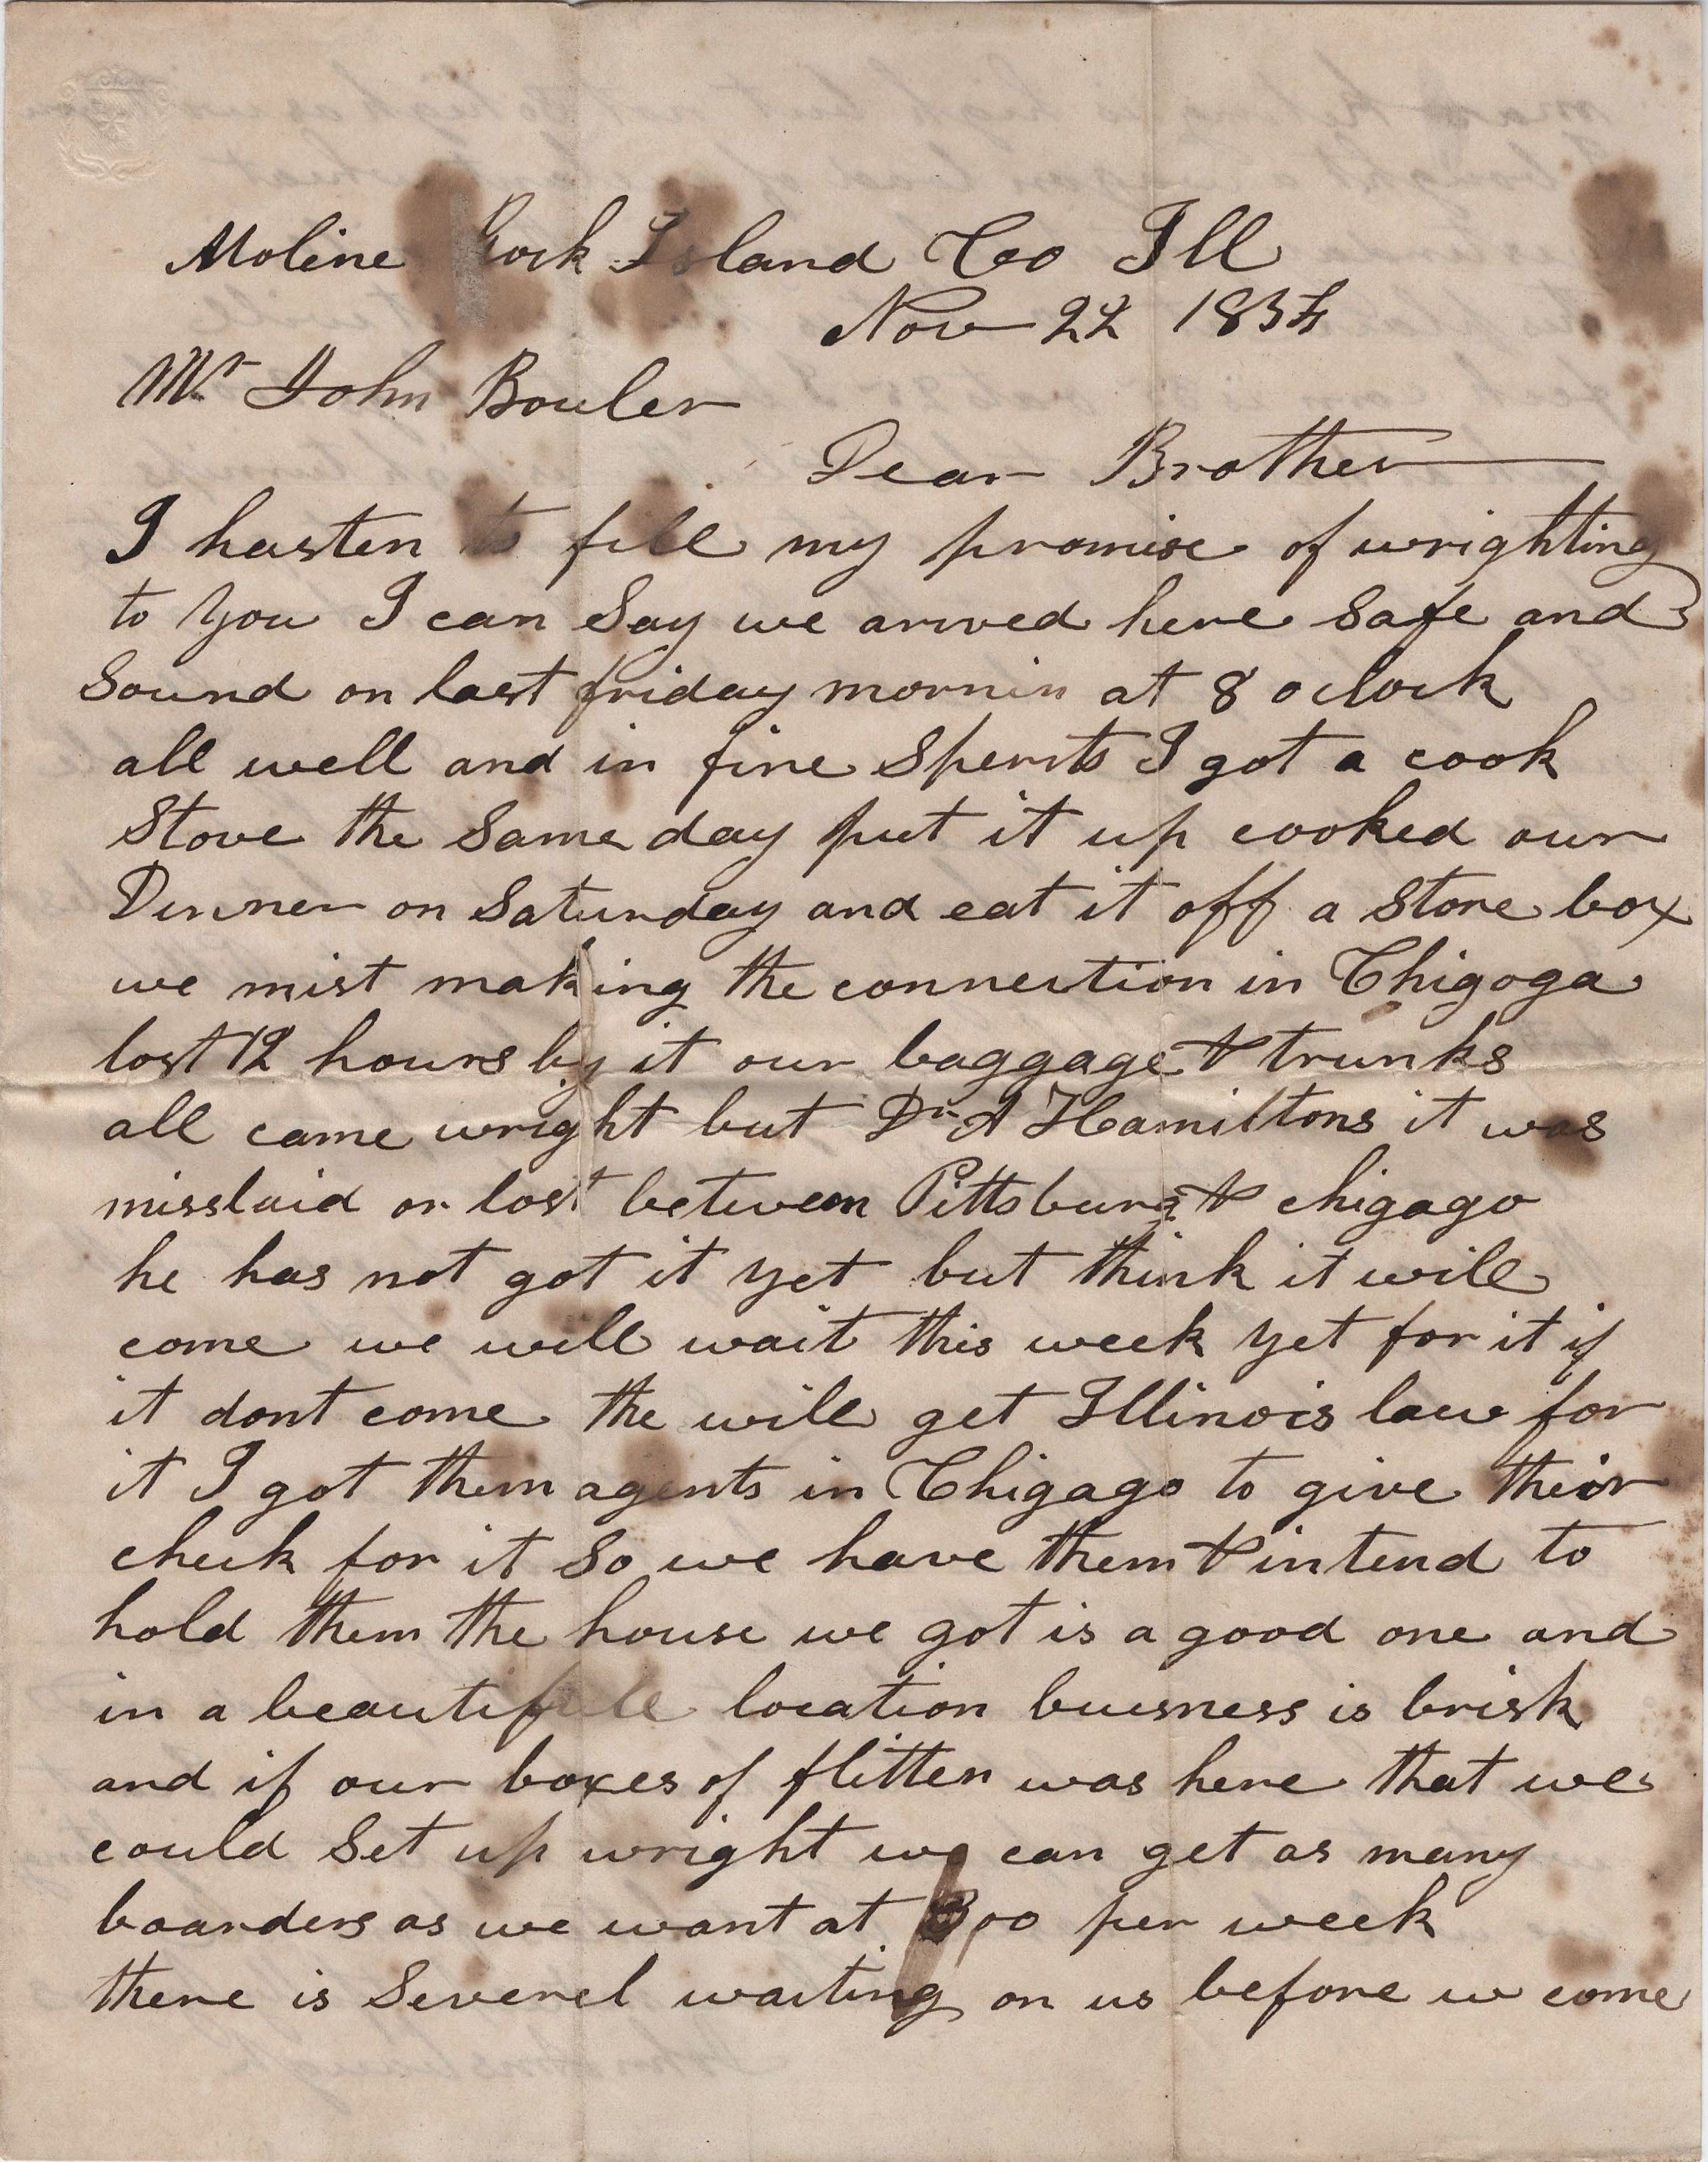 Moline Rock Island Co Ill
Nov 22 185
Mr John Bowler
Dear Brother
I hasten to fill my promise of wrighting
to you I can Say we arived here Safe and
Sound on last friday mornin at 8 oclock
all well and in fine Sperits I got a cook
Stove the Same day put it up cooked our
Dinner on Saturday and eat it off a Store box
we mist making the connection in Chigoga
lost 12 hours by it our baggage & trunks
all came wright but Dr A Hamiltons it was
misslaid or lost between Pittsburg & chigago
he has not got it yet but think it will
come we will wait this week yet for it if
it dont come the will get Illinois law for
it I got them agents in Chigago to give their
check for it So we have them & intend to
hold them the house we got is a good one and
in a beautifull location buisness is brisk
and if our boxes of flitten was here that we
could Set up wright we can get as many
boarders as we want at 300 per week
there is Severel waiting on us before w come